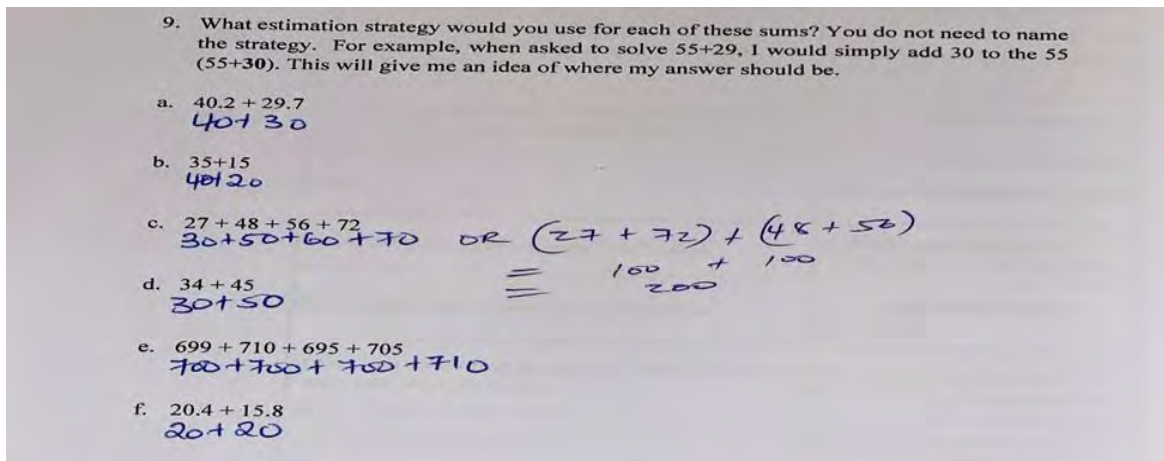 9. What estimation strategy would you use for each of these sums? You do not need to name
the strategy. For example, when asked to solve 55+29, I would simply add 30 to the 55
(55+30). This will give me an idea of where my answer should be.
a. 40.2 + 29.7
40+30
b. 35+15
40+20
c. 27 + 48 + 56 + 72
30+50+60+70 OR (27 + 72) + (48 + 56)
= 100 + 100
= 200
d. 34 + 45
30+50
e. 699 + 710 + 695 + 705
700+700+ 700 +710
f. 20.4 + 15.8
20+20